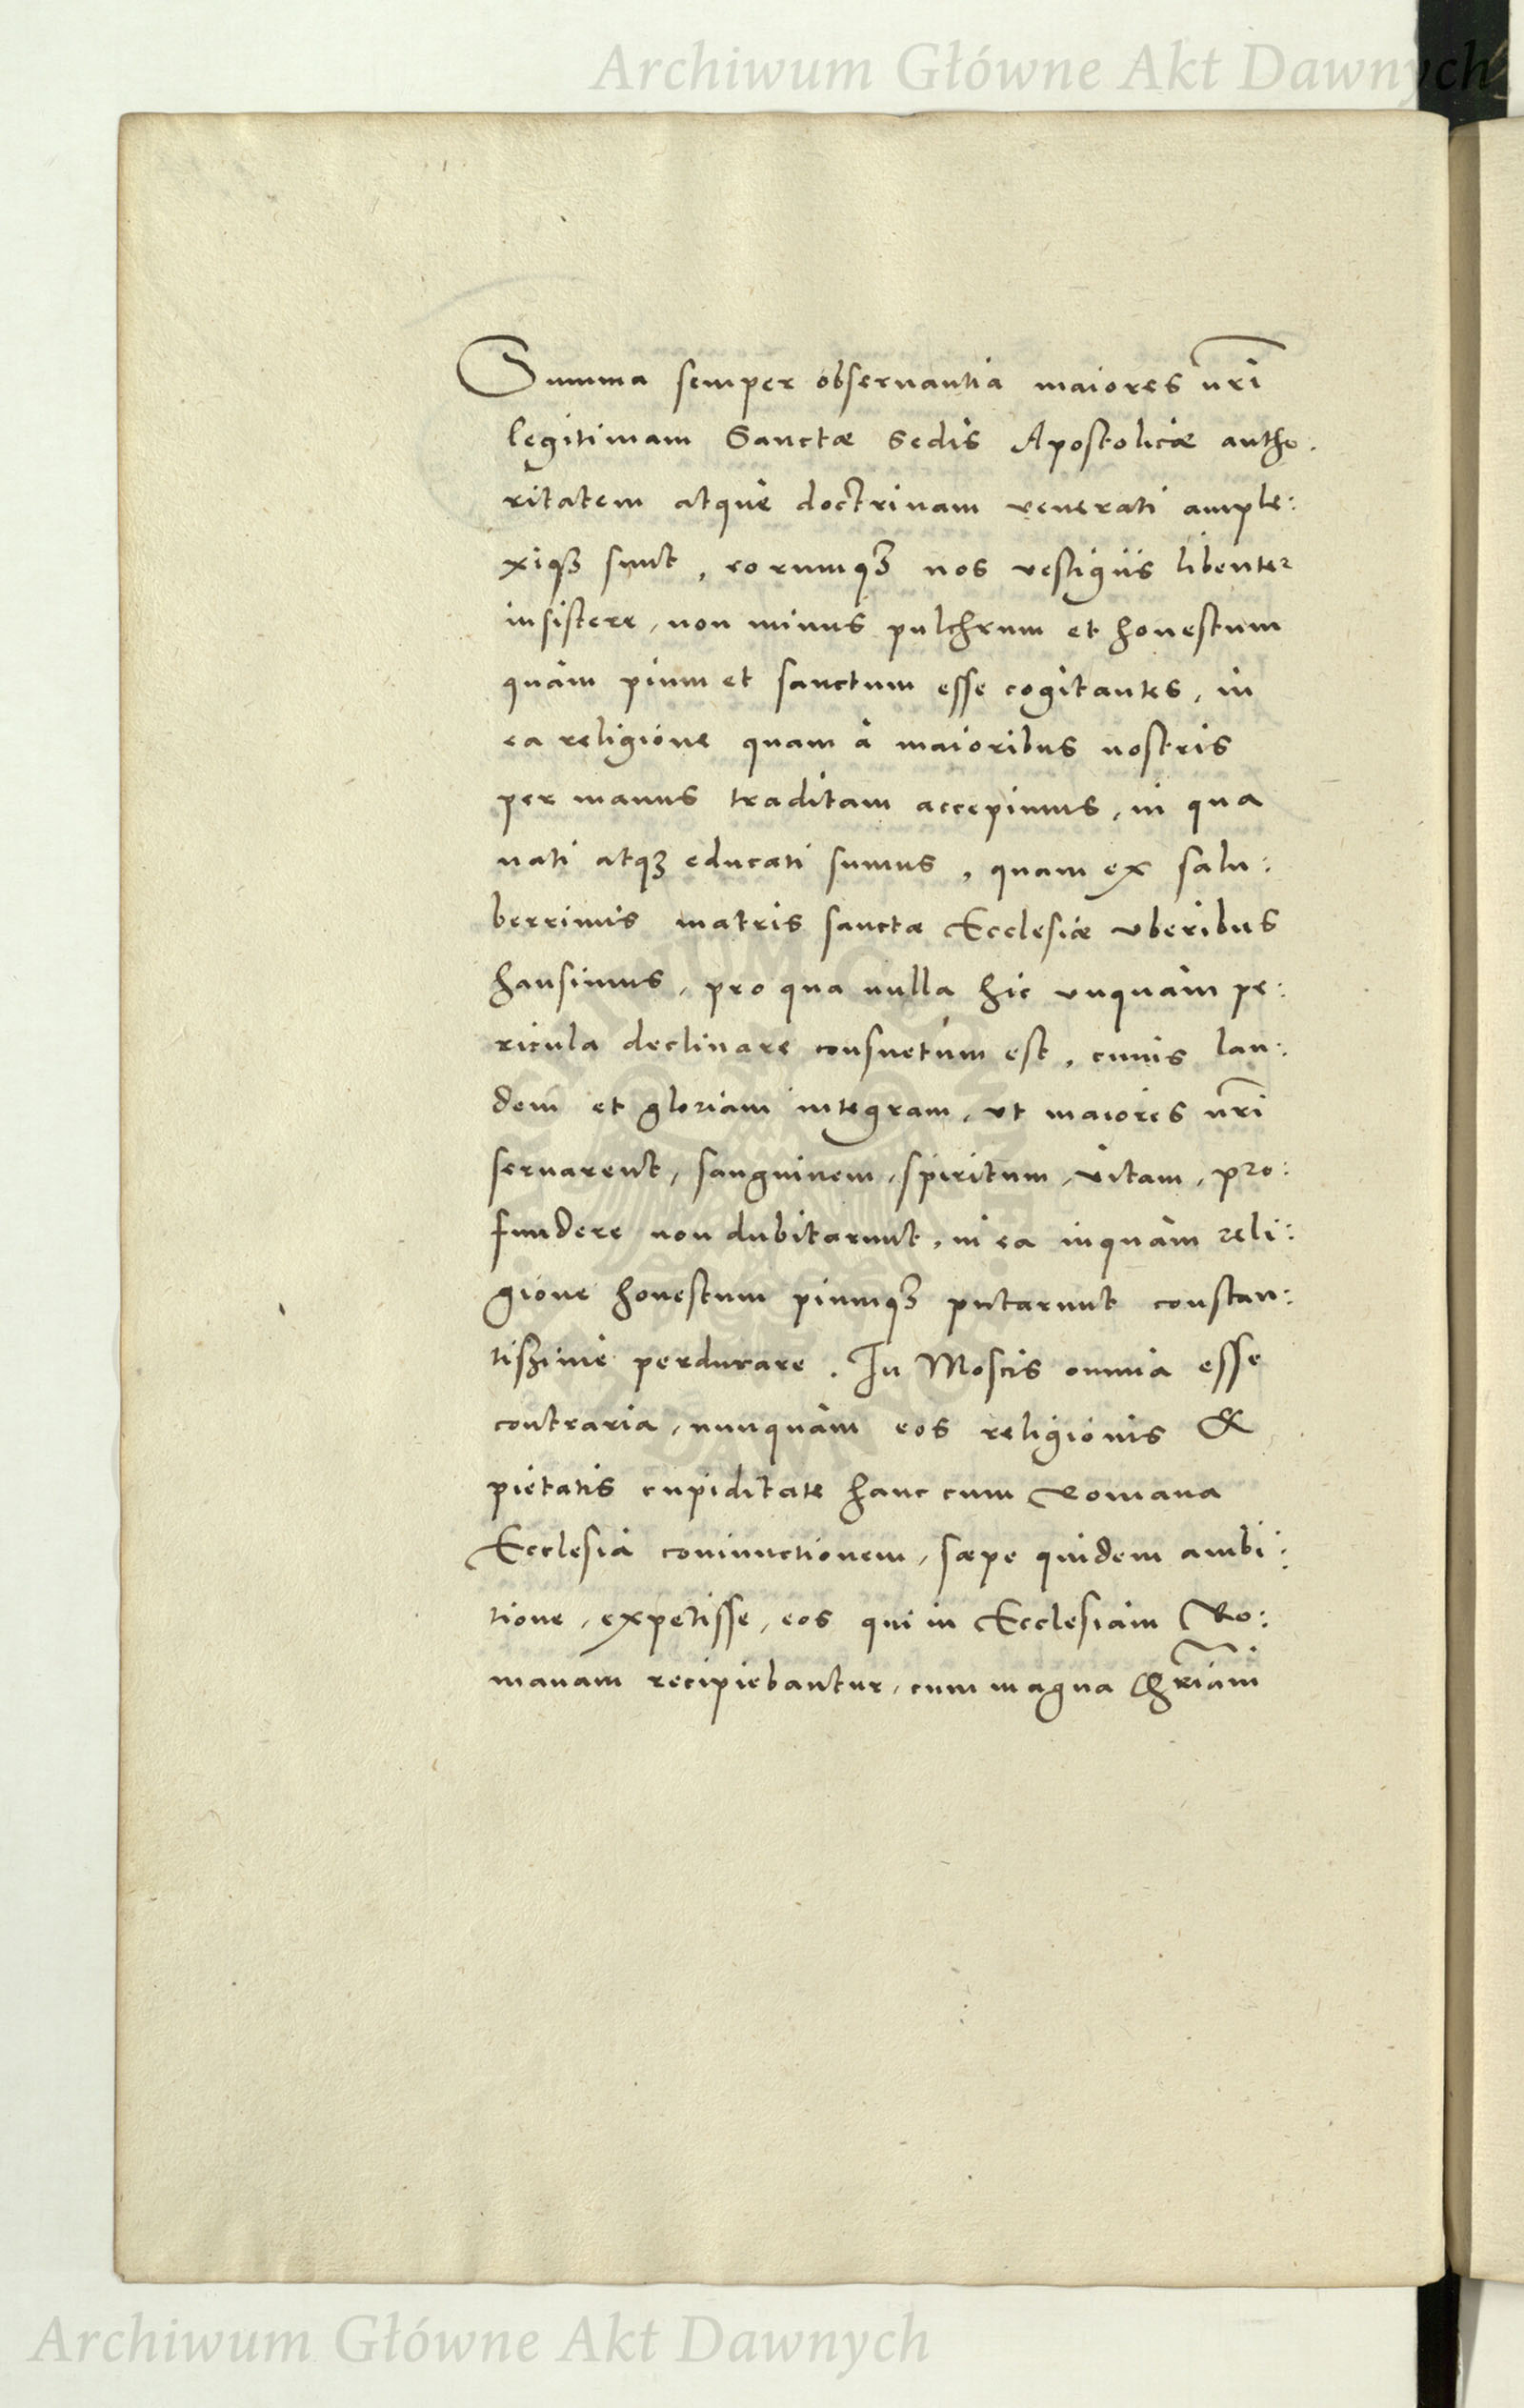 Archiwum Główne Akt Dawnych
Summa semper obseruantia maiores nr̃i
legitimam Sanctæ Sedis Apostolicæ autho.
ritatem atque doctrinam venerati ample:
xiqꝫ sunt, eorumqꝫ nos vestigijs libenter
insistere, non minus pulchrum et honestum
quàm pium et sanctum esse cogitantes, in
ea religione quam à maioribus nostris
per manus traditam accepimus, in qua
nati atqꝫ educati sumus, quam ex salu:
berrimis matris sanctæ Ecclesiæ vberibus
hausimus, pro qua nulla hic vnquàm pe:
ricula declinare consuetum est, cuius lau:
dem et gloriam integram, vt maiores nr̃i
seruarent, sanguinem, spiritum, vitam, pro:
fundere non dubitarunt, in ea inquàm reli:
gione honestum piumqꝫ putarunt constan:
tißime perdurare. In Moscis omnia esse
contraria, nunquàm eos religionis &
pietatis cupiditate hanc cum Romana
Ecclesia coniunctionem, sæpe quidem ambi:
tione, expetisse, eos qui in Ecclesiam Ro:
manam recipiebantur, cum magna Chr̃iani
Archiwum Główne Akt Dawnych